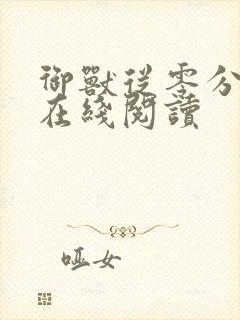 御獸從零分
在綫閱讀
哑女